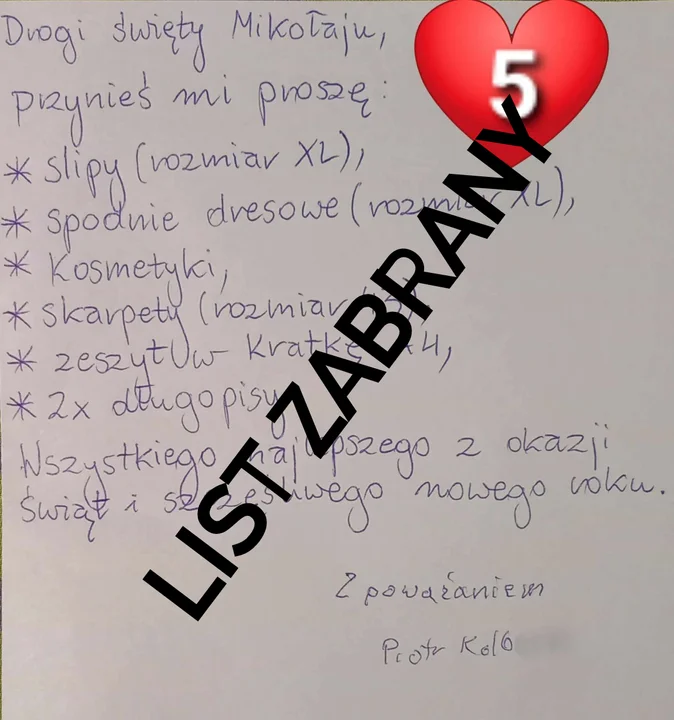 Drogi święty Mikołaju,
5
przynieś mi proszę:
* slipy (rozmiar XL),
* spodnie dresowe (rozmiar XL),
* kosmetyki,
* skarpety (rozmiar
* zeszyt w kratkę 4,
* 2x długopisy
Wszystkiego najlepszego z okazji
świąt i szczęśliwego nowego roku.
LIST ZABRANY
Z poważaniem
Piotr Kolb